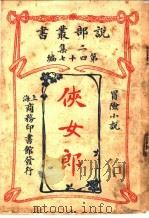 說部叢書
二集
第四十七編
冒險小說
俠女郎
上海
商務印書館發行